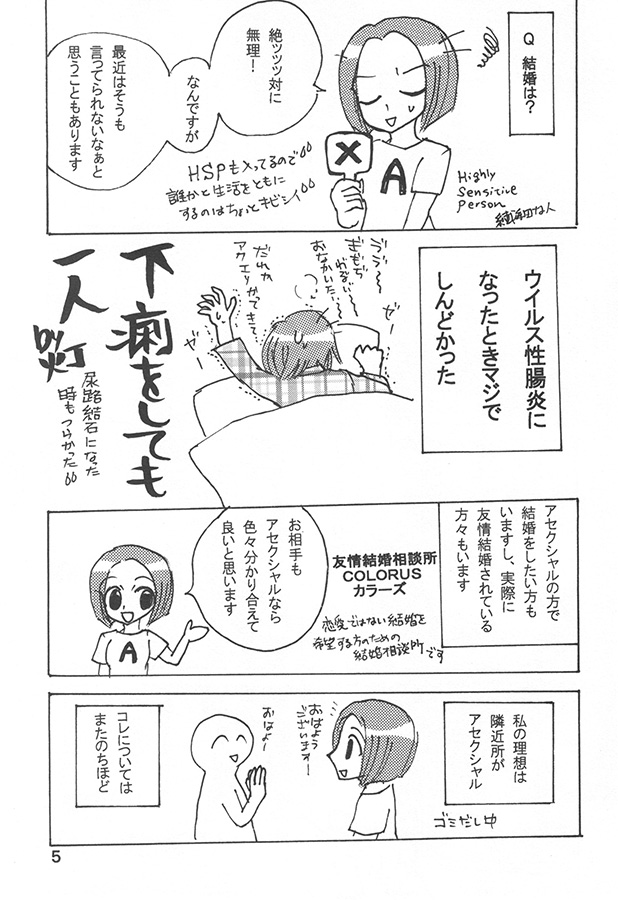 Q 結婚は?
絶ッッッ対に
無理!
なんですが
最近はそうも
言ってられないなぁと
思うこともあります
HSPも入ってるので
誰かと生活をともに
するのはちょいとキビシイ
Highly
Sensitive
Person
繊細な人
A
ウイルス性腸炎に
なったときマジで
しんどかった
うう〜
きもぢ
わるい〜
おなかいた〜
ゼー
ゼー
だれか
アクエリかってきて
下痢をしても
一人
尿路結石になった
時もつらかった
アセクシャルの方で
結婚をしたい方も
いますし、実際に
友情結婚されている
方々もいます
友情結婚相談所
COLORUS
カラーズ
恋愛ではない結婚を
希望する方のための
結婚相談所です
お相手も
アセクシャルなら
色々分かり合えて
良いと思います
A
私の理想は
隣近所が
アセクシャル
ゴミだし中
おはよう
ございますー
おはよー
コレについては
またのちほど
5